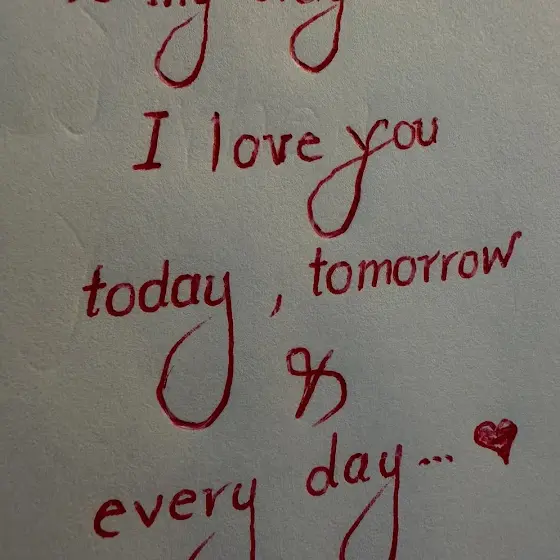 I love you
today, tomorrow
&
every day... ♥